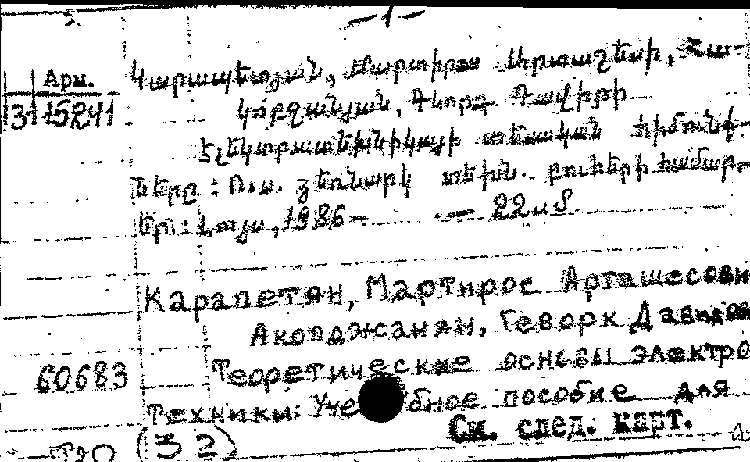 – 1 –
Арм. Կարապետյան, Մարտիրոս Արտաշեսի, Հա-
կոբջանյան, Գևորգ Դավիթի
Էլեկտրատեխնիկայի տեսական հիմունք-
ները : Ուս. ձեռնարկ տեխն. բուհերի համար.
Եր.: Լույս, 1986 – – 22 սմ
Карапетян, Мартирос Арташесови
Акопджанян, Геворк Давидов
60683 Теоретические основы электро
Техники: Уче бное пособие для
См. след. карт.